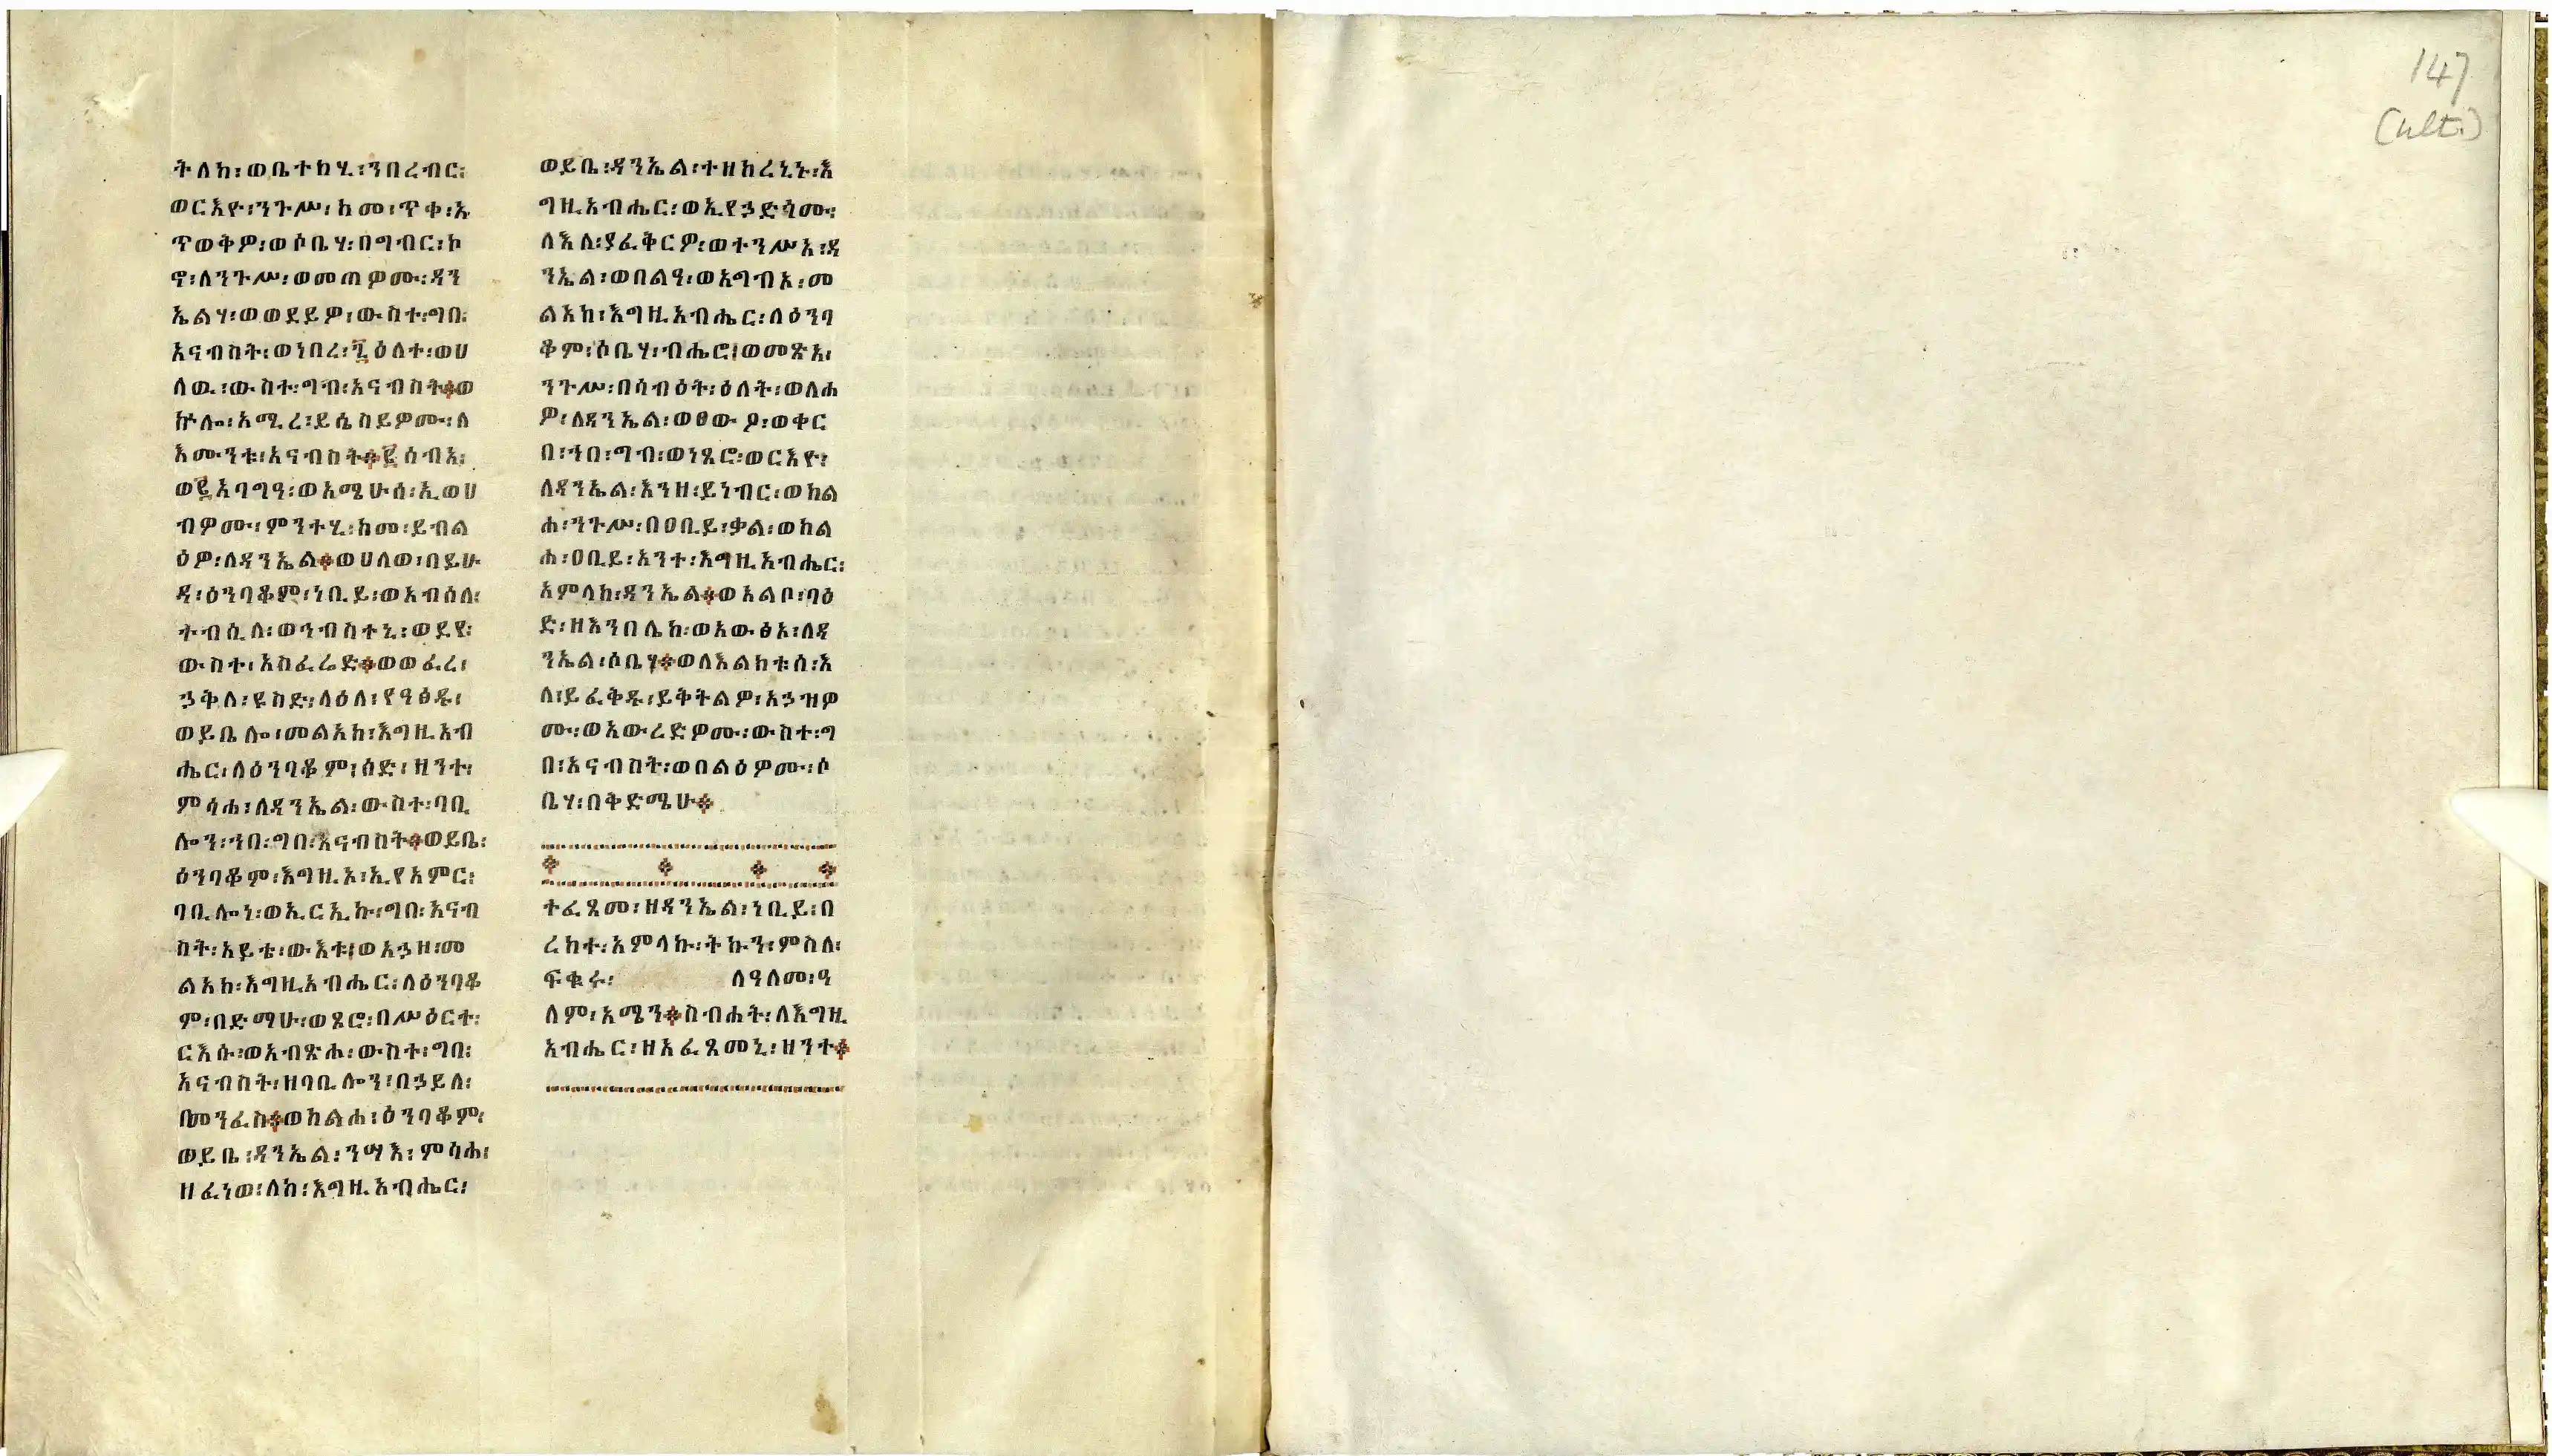 ትለክ፡ወቤተከሂ፡ንበረብር፡
ወርእዮ፡ንጉሥ፡ከመ፡ጥቀ፡አ
ጥወቅዎ፡ወሶቤሃ፡በግብር፡ኮ
ኖ፡ለንጉሥ፡ወመጠዎሙ፡ዳን
ኤልሃ፡ወወደይዎ፡ውስተ፡ግበ፡
አናብስት፡ወነበረ፡፯ዕለተ፡ወሀ
ለዉ፡ውስተ፡ግብ፡አናብስት፨ወ
ኵሎ፡አሚረ፡ይሴስይዎሙ፡ለ
እሙንቱ፡አናብስት፨፪ሰብአ፡
ወ፪አባግዓ፡ወአሜሁሰ፡ኢወሀ
ብዎሙ፡ምንተሂ፡ከመ፡ይብል
ዕዎ፡ለዳንኤል፨ወሀለወ፡በይሁ
ዳ፡ዕንባቆም፡ነቢይ፡ወአብሰለ፡
ትብሲለ፡ወኅብስተኒ፡ወደየ፡
ውስተ፡አስፈሬድ፨ወወፈረ፡
ኃቅለ፡ዩስድ፡ለዕለ፡የዓፅዱ፡
ወይቤሎ፡መልአከ፡እግዚአብ
ሔር፡ለዕንባቆም፡ሰድ፡ዘንተ፡
ምሳሐ፡ለዳንኤል፡ውስተ፡ባቢ
ሎን፡ኀበ፡ግበ፡አናብስት፨ወይቤ፡
ዕንባቆም፡እግዚኦ፡ኢየአምር፡
ባቢሎነ፡ወኢርኢኩ፡ግበ፡አናብ
ስት፡አይቴ፡ውእቱ፡ወአኃዘ፡መ
ልአከ፡እግዚአብሔር፡ለዕንባቆ
ም፡በድማሁ፡ወጾሮ፡በሥዕርተ፡
ርእሱ፡ወአብጽሖ፡ውስተ፡ግበ፡
አናብስት፡ዘባቢሎን፡በኃይለ፡
መንፈስ፨ወከልሐ፡ዕንባቆም፡
ወይቤ፡ዳንኤል፡ንሣእ፡ምሳሐ፡
ዘፈነወ፡ለከ፡እግዚአብሔር፡
ወይቤ፡ዳንኤል፡ተዘከረኒኑ፡እ
ግዚአብሔር፡ወኢየኃድጎሙ፡
ለእለ፡ያፈቅርዎ፡ወተንሥአ፡ዳ
ንኤል፡ወበልዓ፡ወአግብኦ፡መ
ልአከ፡እግዚአብሔር፡ለዕንባ
ቆም፡ሶቤሃ፡ብሔሮ፡ወመጽአ፡
ንጉሥ፡በሳብዕት፡ዕለት፡ወለሐ
ዎ፡ለዳንኤል፡ወፀውዖ፡ወቀር
በ፡ኀበ፡ግብ፡ወነጸሮ፡ወርእዮ፡
ለዳንኤል፡እንዘ፡ይነብር፡ወከል
ሐ፡ንጉሥ፡በዐቢይ፡ቃል፡ወከል
ሐ፡ዐቢይ፡አንተ፡እግዚአብሔር፡
አምላከ፡ዳንኤል፨ወአልቦ፡ባዕ
ድ፡ዘእንበሌከ፡ወአውፅአ፡ለዳ
ንኤል፡ሶቤሃ፨ወለእልክቱሰ፡እ
ለ፡ይፈቅዱ፡ይቅትልዎ፡አኃዝዎ
ሙ፡ወአውረድዎሙ፡ውስተ፡ግ
በ፡አናብስት፡ወበልዕዎሙ፡ሶ
ቤሃ፡በቅድሜሁ፨
ተፈጸመ፡ዘዳንኤል፡ነቢይ፡በ
ረከተ፡አምላኩ፡ትኩን፡ምስለ፡
ፍቁሩ፡ ለዓለመ፡ዓ
ለም፡አሜን፨ስብሐት፡ለእግዚ
አብሔር፡ዘአፈጸመኒ፡ዘንተ፨
147
(ult.)